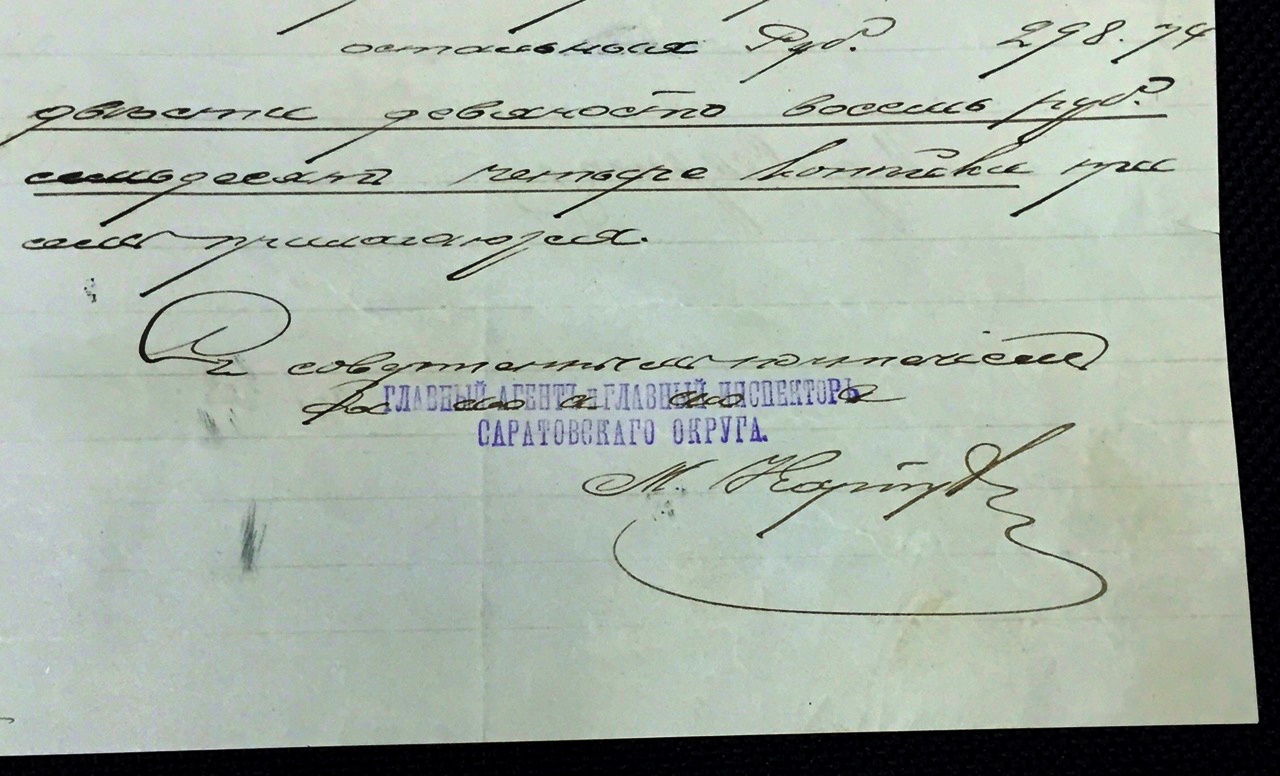 остальныя Руб. 298.74
двѣсти девяносто восемь руб.
семьдесятъ четыре копѣйки при
семъ прилагаются.
Съ совершеннымъ почтеніемъ
ГЛАВНЫЙ АГЕНТЪ и ГЛАВНЫЙ ИНСПЕКТОРЪ
САРАТОВСКАГО ОКРУГА.
М.